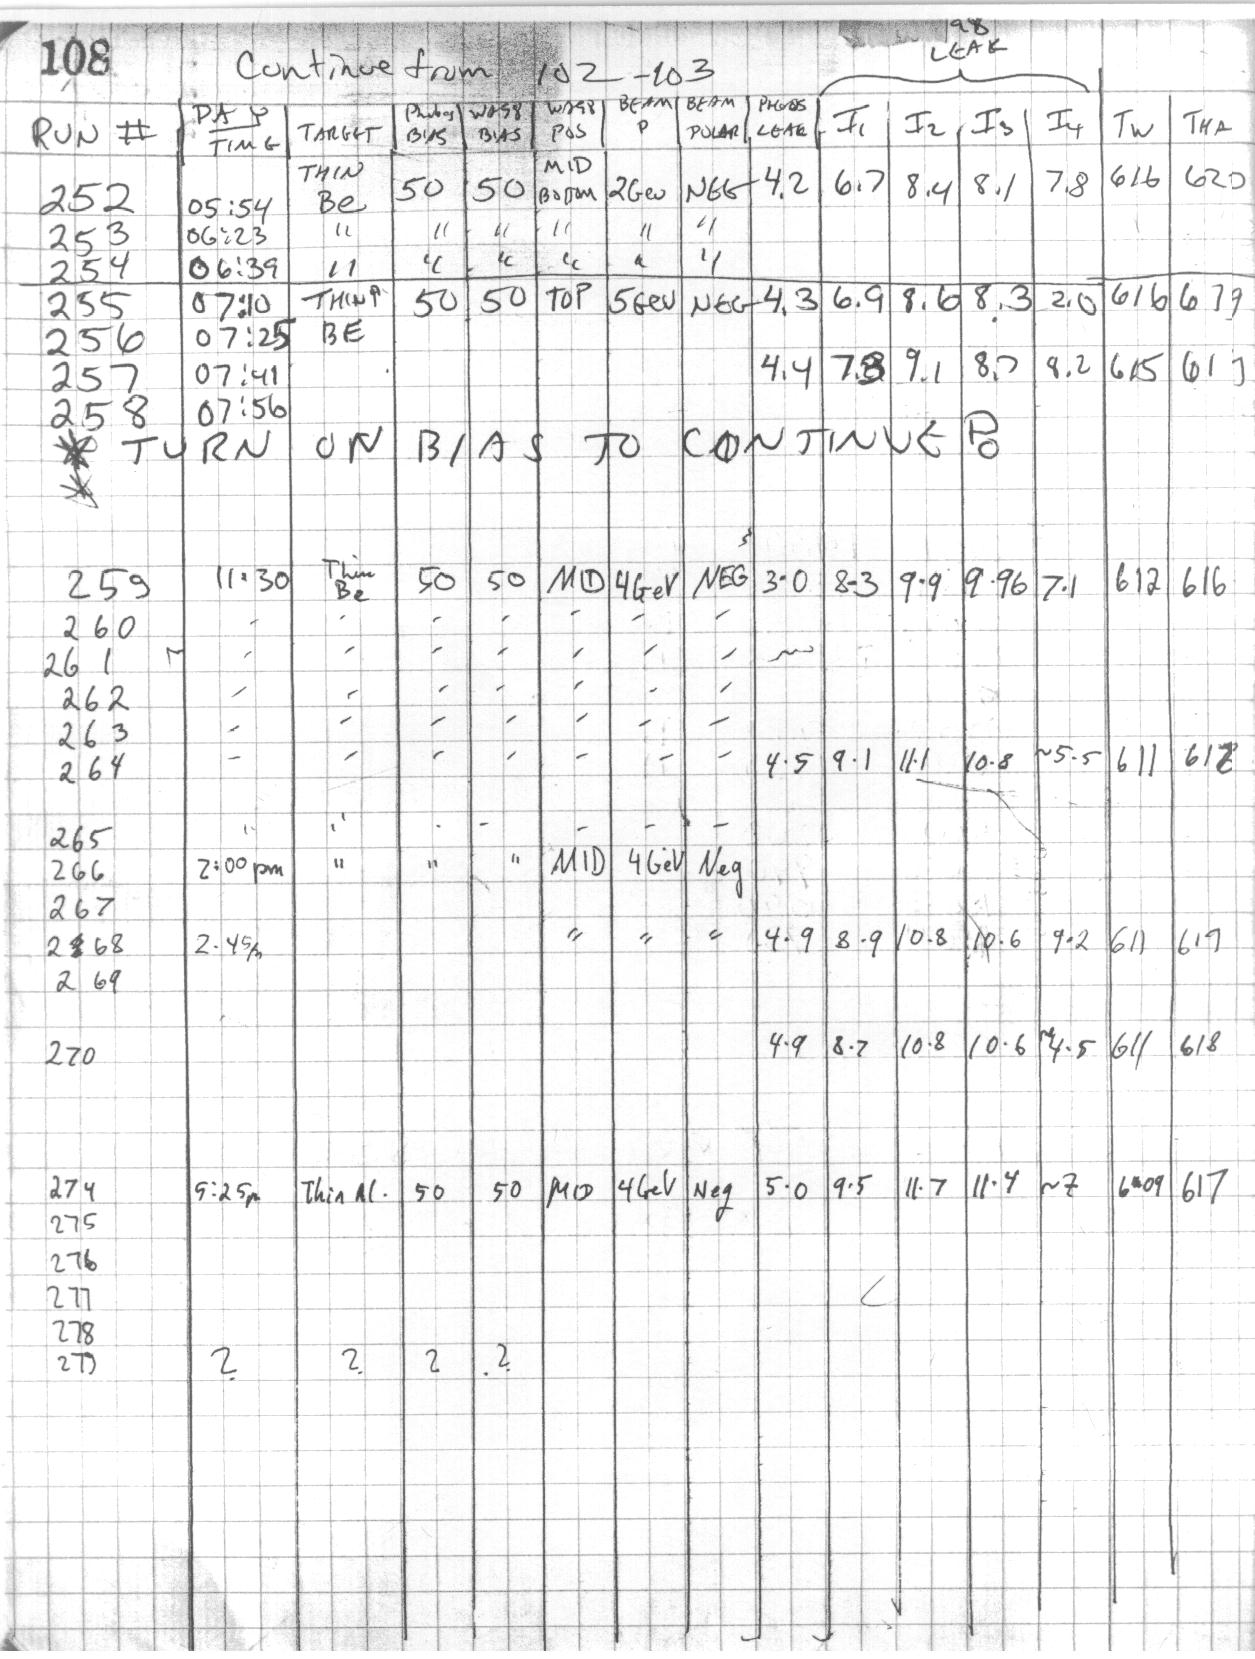 108
Continue from 102-103
98
LEAK
RUN # DAY TIME TARGET Phobos BIAS WA98 BIAS WA98 POS BEAM P BEAM POLAR PHOBOS LEAK I1 I2 I3 I4 TW THA
252 05:54 THIN Be 50 50 MID Bottom 2Gev NEG 4.2 6.7 8.4 8.1 7.8 616 620
253 06:23 " " " " " "
254 06:39 " " " " " "
255 07:10 THIN 50 50 TOP 5GeV NEG 4.3 6.9 8.6 8.3 2.0 616 619
256 07:25 BE
257 07:41 4.4 9.1 8.7 8.2 615
258 07:56
* TURN ON BIAS TO CONTINUE
*
259 11:30 Thin Be 50 50 MID 4GeV NEG 3.0 8.3 9.9 9.96 7.1 612 616
260 " " " " " " "
261 " " " " " " " ~
262 " " " " " " "
263 " " " " " " "
264 " " " " " " " 4.5 9.1 11.1 10.8 ~5.5 611 612
265 " " " " " " "
266 2:00pm " " " MID 4GeV Neg
267
268 2.45p " " " 4.9 8.9 10.8 10.6 9.2 611 619
269
270 4.9 8.7 10.8 10.6 ~4.5 611 618
274 5:25p Thin Al. 50 50 MID 4GeV Neg 5.0 9.5 11.7 11.4 ~7 609 617
275
276
277
278
279 ? ? ? ?